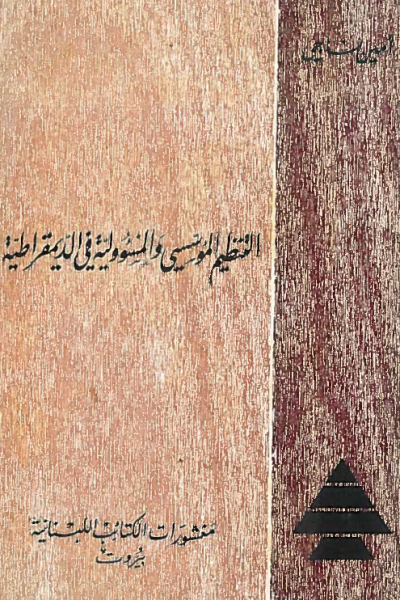 أمين ناجي
التنظيم المؤسسي والمسؤولية في الديمقراطية
منشورات الكتائب اللبنانية
بيروت